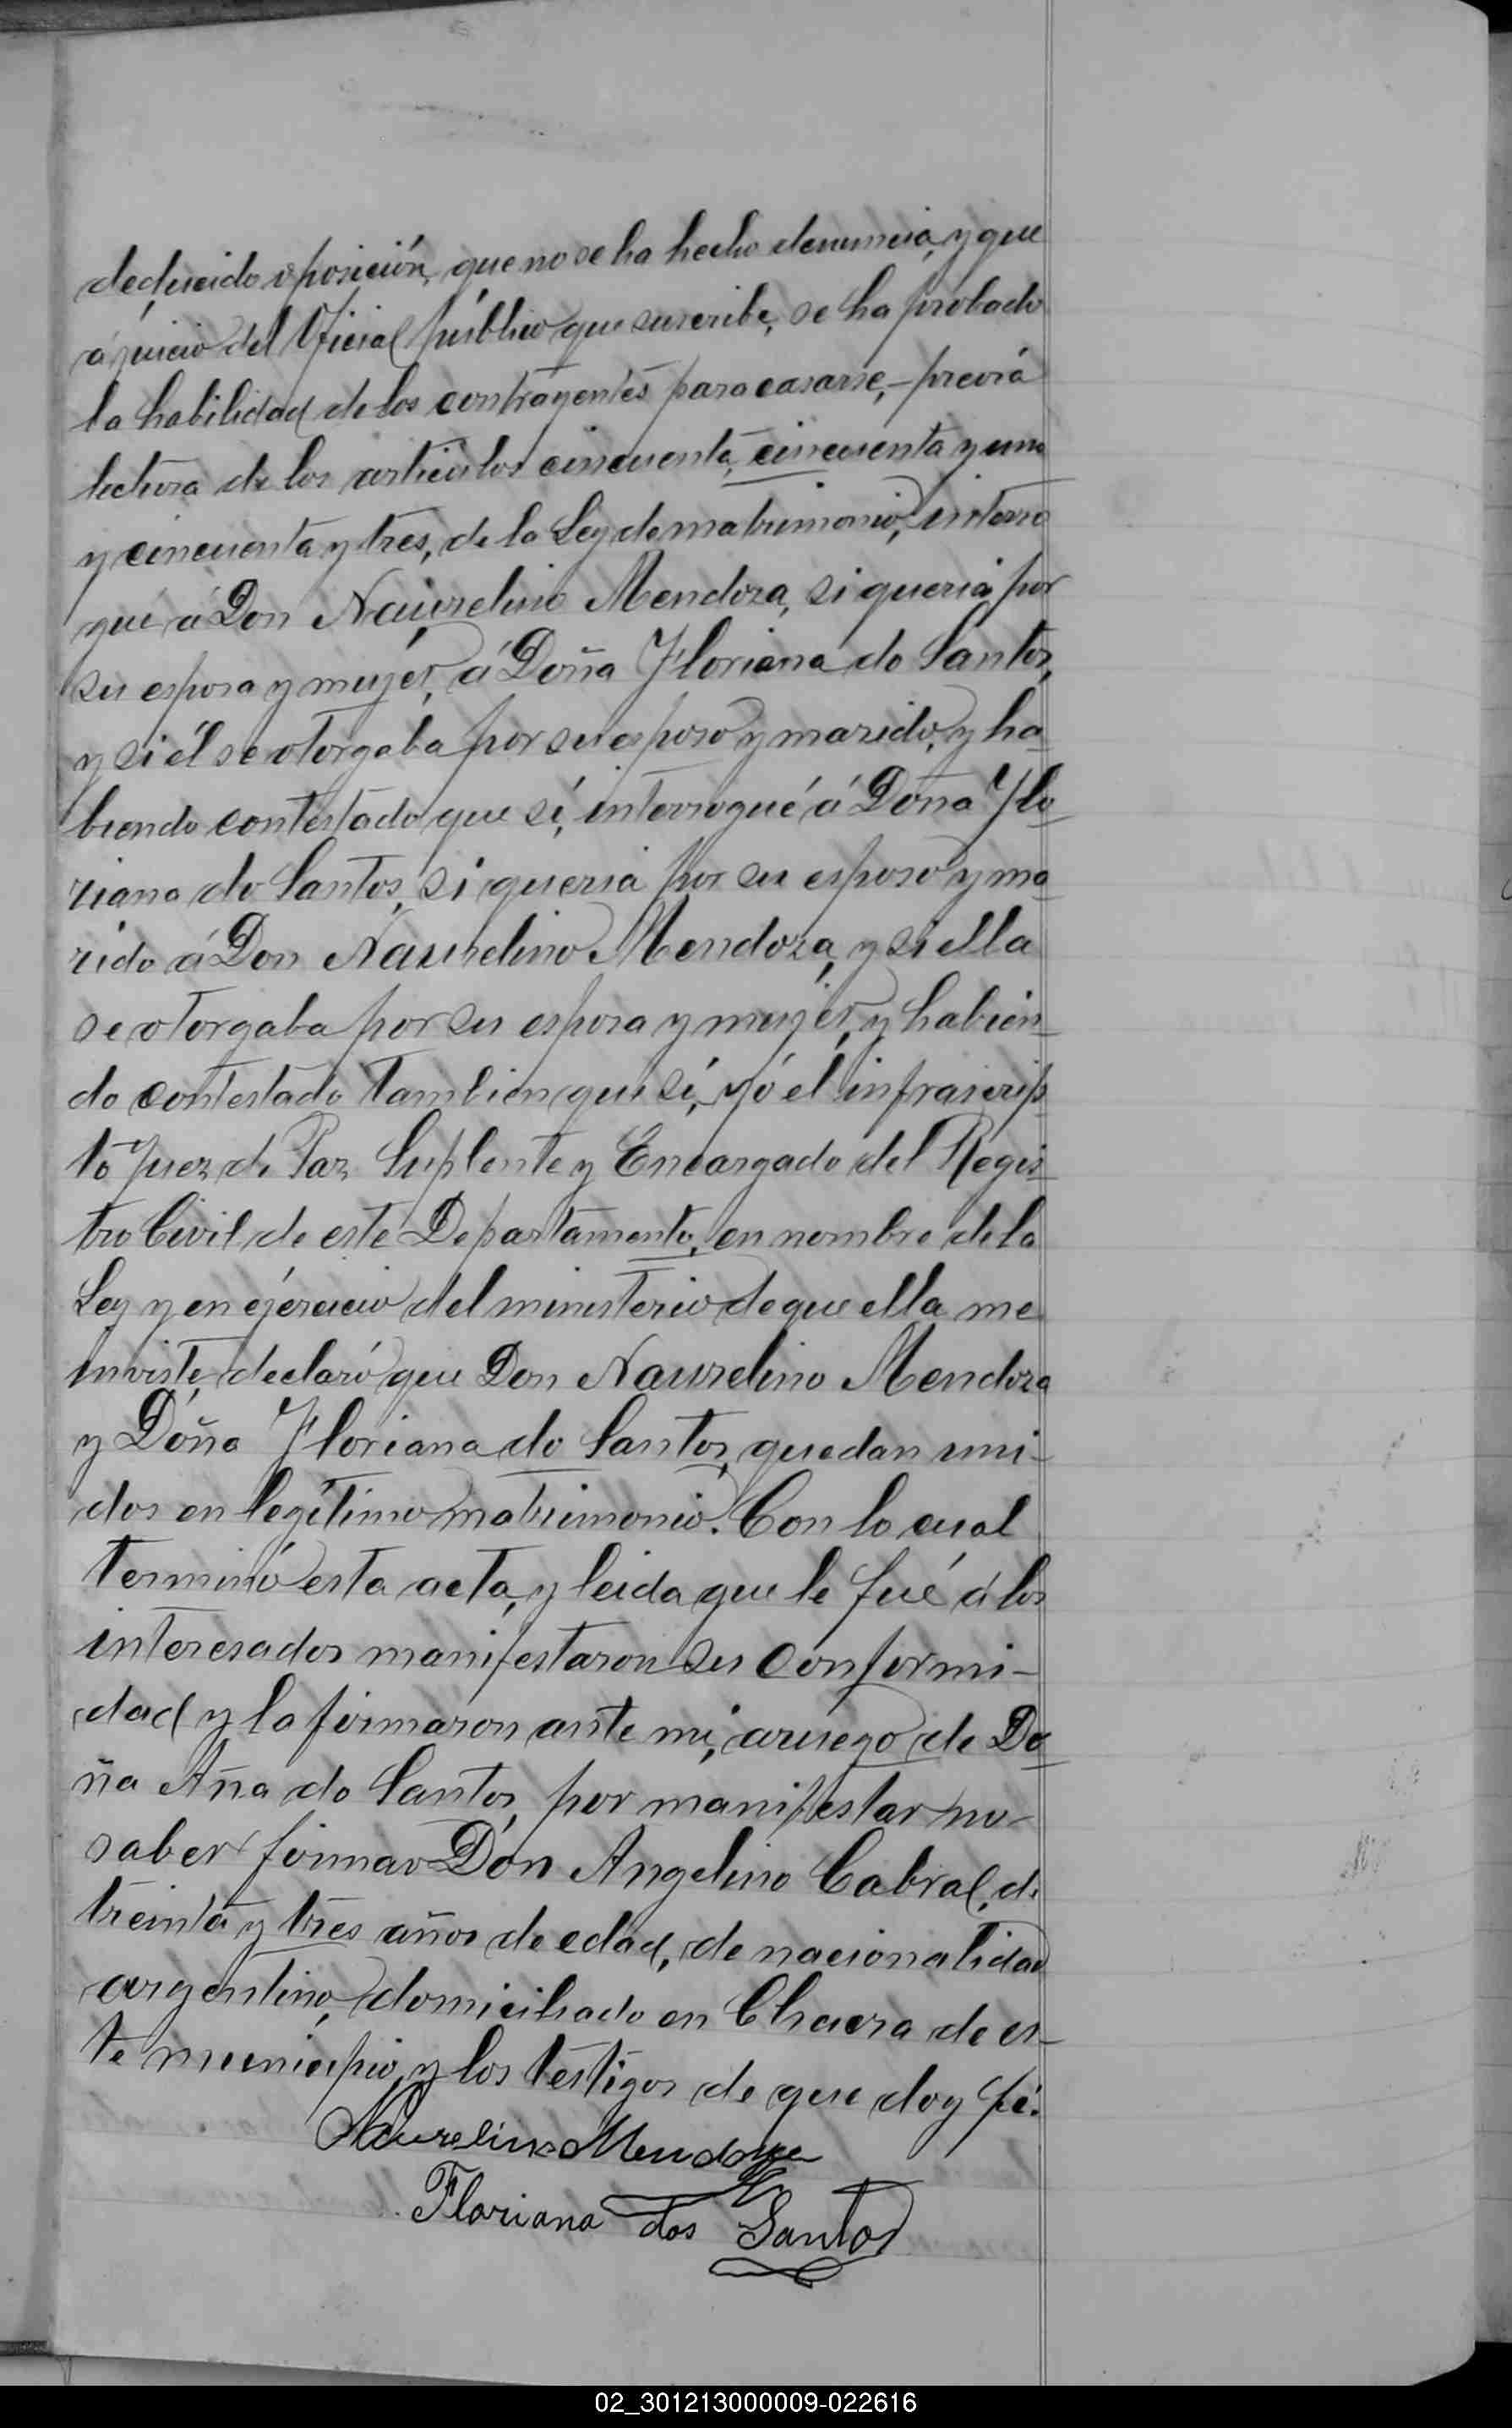 deducido oposición, que no se ha hecho denuncia, y que
á juicio del Oficial público que suscribe, se ha probado
la habilidad de los contrayentes para casarse,- previa
lectura de los articulos cincuenta, cincuenta y uno
y cincuenta y tres, de la Ley de matrimonio, interro
gué á Don Naurelino Mendoza, si queria por
su esposa y mujer, á Doña Floriana do Santos,
y si él se otorgaba por su esposo y marido, y ha-
biendo contestado que sí, interrogué á Doña Flo-
riana do Santos, si queria por su esposo y ma-
rido á Don Naurelino Mendoza, y si ella
se otorgaba por su esposa y mujer, y habien-
do contestado tambien que sí, yó el infrascrip
to Juez de Paz Suplente y Encargado del Regis-
tro Civil de este Departamento, en nombre de la
Ley y en ejercicio del ministerio de que ella me
inviste, declaró que Don Naurelino Mendoza
y Doña Floriana do Santos, quedan uni-
dos en legítimo matrimonio. Con lo cual
terminó esta acta, y leida que le fué á los
interesados manifestaron su conformi-
dad y la firmaron ante mi, aruego de Do-
ña Aña do Santos, por manifestar no
saber firmar Don Angelino Cabral, de
treinta y tres años de edad, de nacionalidad
argentino, domiciliado en Chacra de es-
te municipio, y los testigos de que doy fé.
Naurelino Mendoza
Floriana dos Santos
02_301213000009-022616